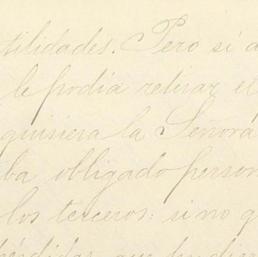 tilidades. Pero si a
le podia retirar el
quisiera la Señora
ba obligado person
los terceros: si no q
pérdidas que